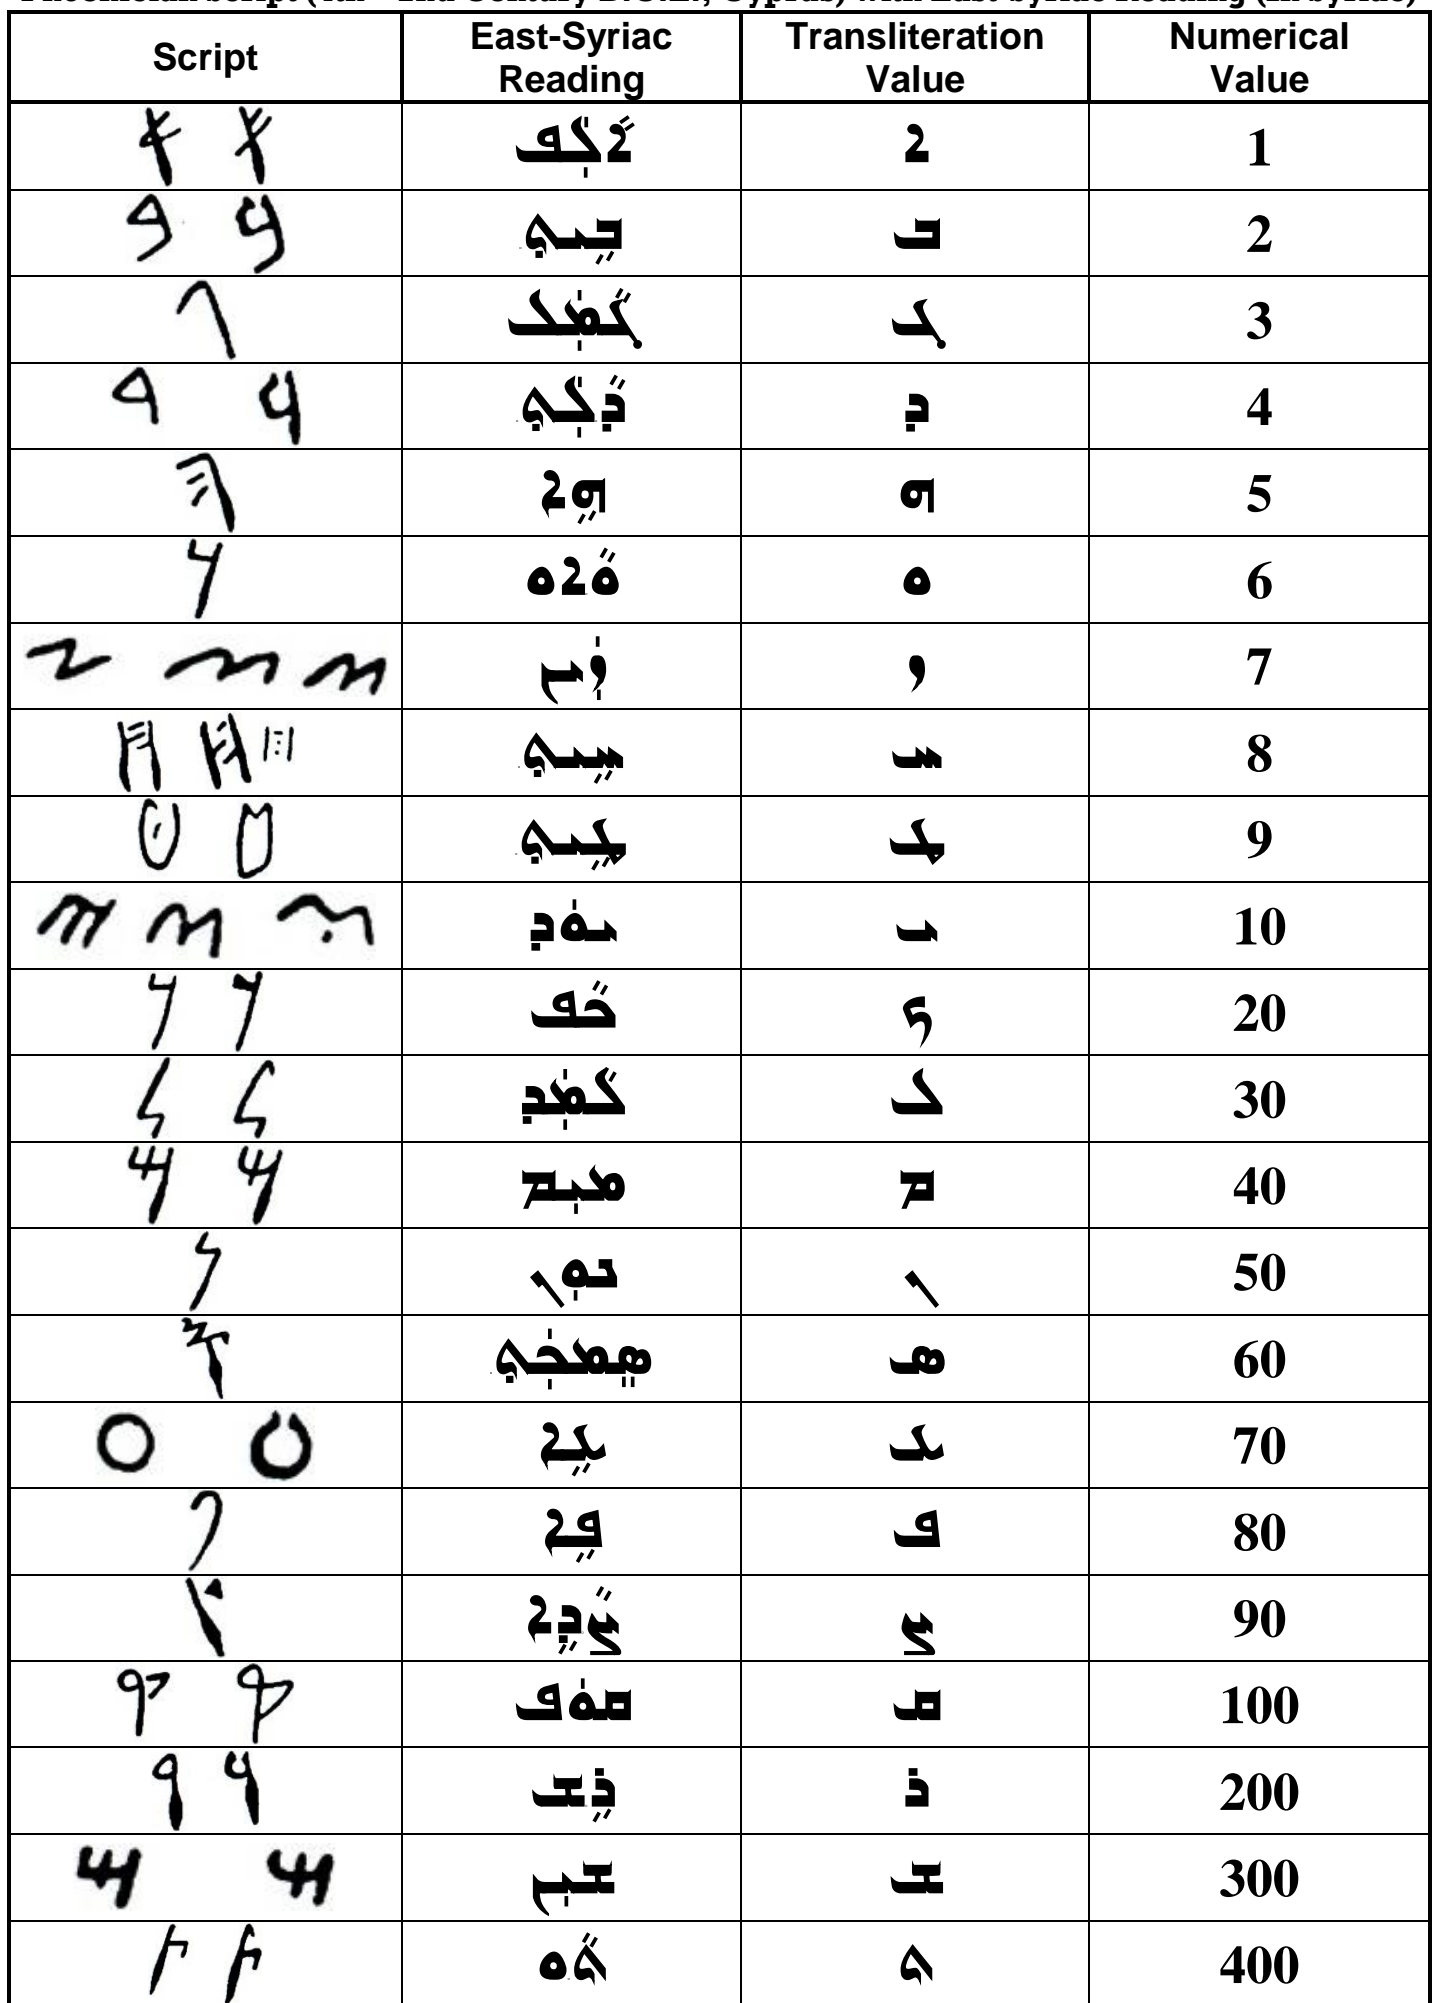 Phoenician script (4th - 2nd Century B.C.E., Cyprus) with East-Syriac Reading (in Syriac)
Script East-Syriac Reading Transliteration Value Numerical Value
𐤀 𐤀 ܐܵܠܲܦ ܐ 1
𐤁 𐤁 ܒܹܝܬ݂ ܒ 2
𐤂 ܓܵܡܲܠ ܓ 3
𐤃 𐤃 ܕܵܠܲܬ݂ ܕ 4
𐤄 ܗܹܐ ܗ 5
𐤅 ܘܵܐܘ ܘ 6
𐤆 𐤆 𐤆 ܙܲܝܢ ܙ 7
𐤇 𐤇 𐤇 ܚܹܝܬ݂ ܚ 8
𐤈 𐤈 ܛܹܝܬ݂ ܛ 9
𐤉 𐤉 𐤉 ܝܘܿܕ ܝ 10
𐤊 𐤊 ܟܵܦ ܟ 20
𐤋 𐤋 ܠܵܡܲܕ ܠ 30
𐤌 𐤌 ܡܝܼܡ ܡ 40
𐤍 ܢܘܼܢ ܢ 50
𐤎 ܣܸܡܟܲܬ݂ ܣ 60
𐤏 𐤏 ܥܹܐ ܥ 70
𐤐 ܦܹܐ ܦ 80
𐤑 ܨܵܕܹܐ ܨ 90
𐤒 𐤒 ܩܘܿܦ ܩ 100
𐤓 𐤓 ܪܹܫ ܪ 200
𐤔 𐤔 ܫܝܼܢ ܫ 300
𐤕 𐤕 ܬܵܘ ܬ 400